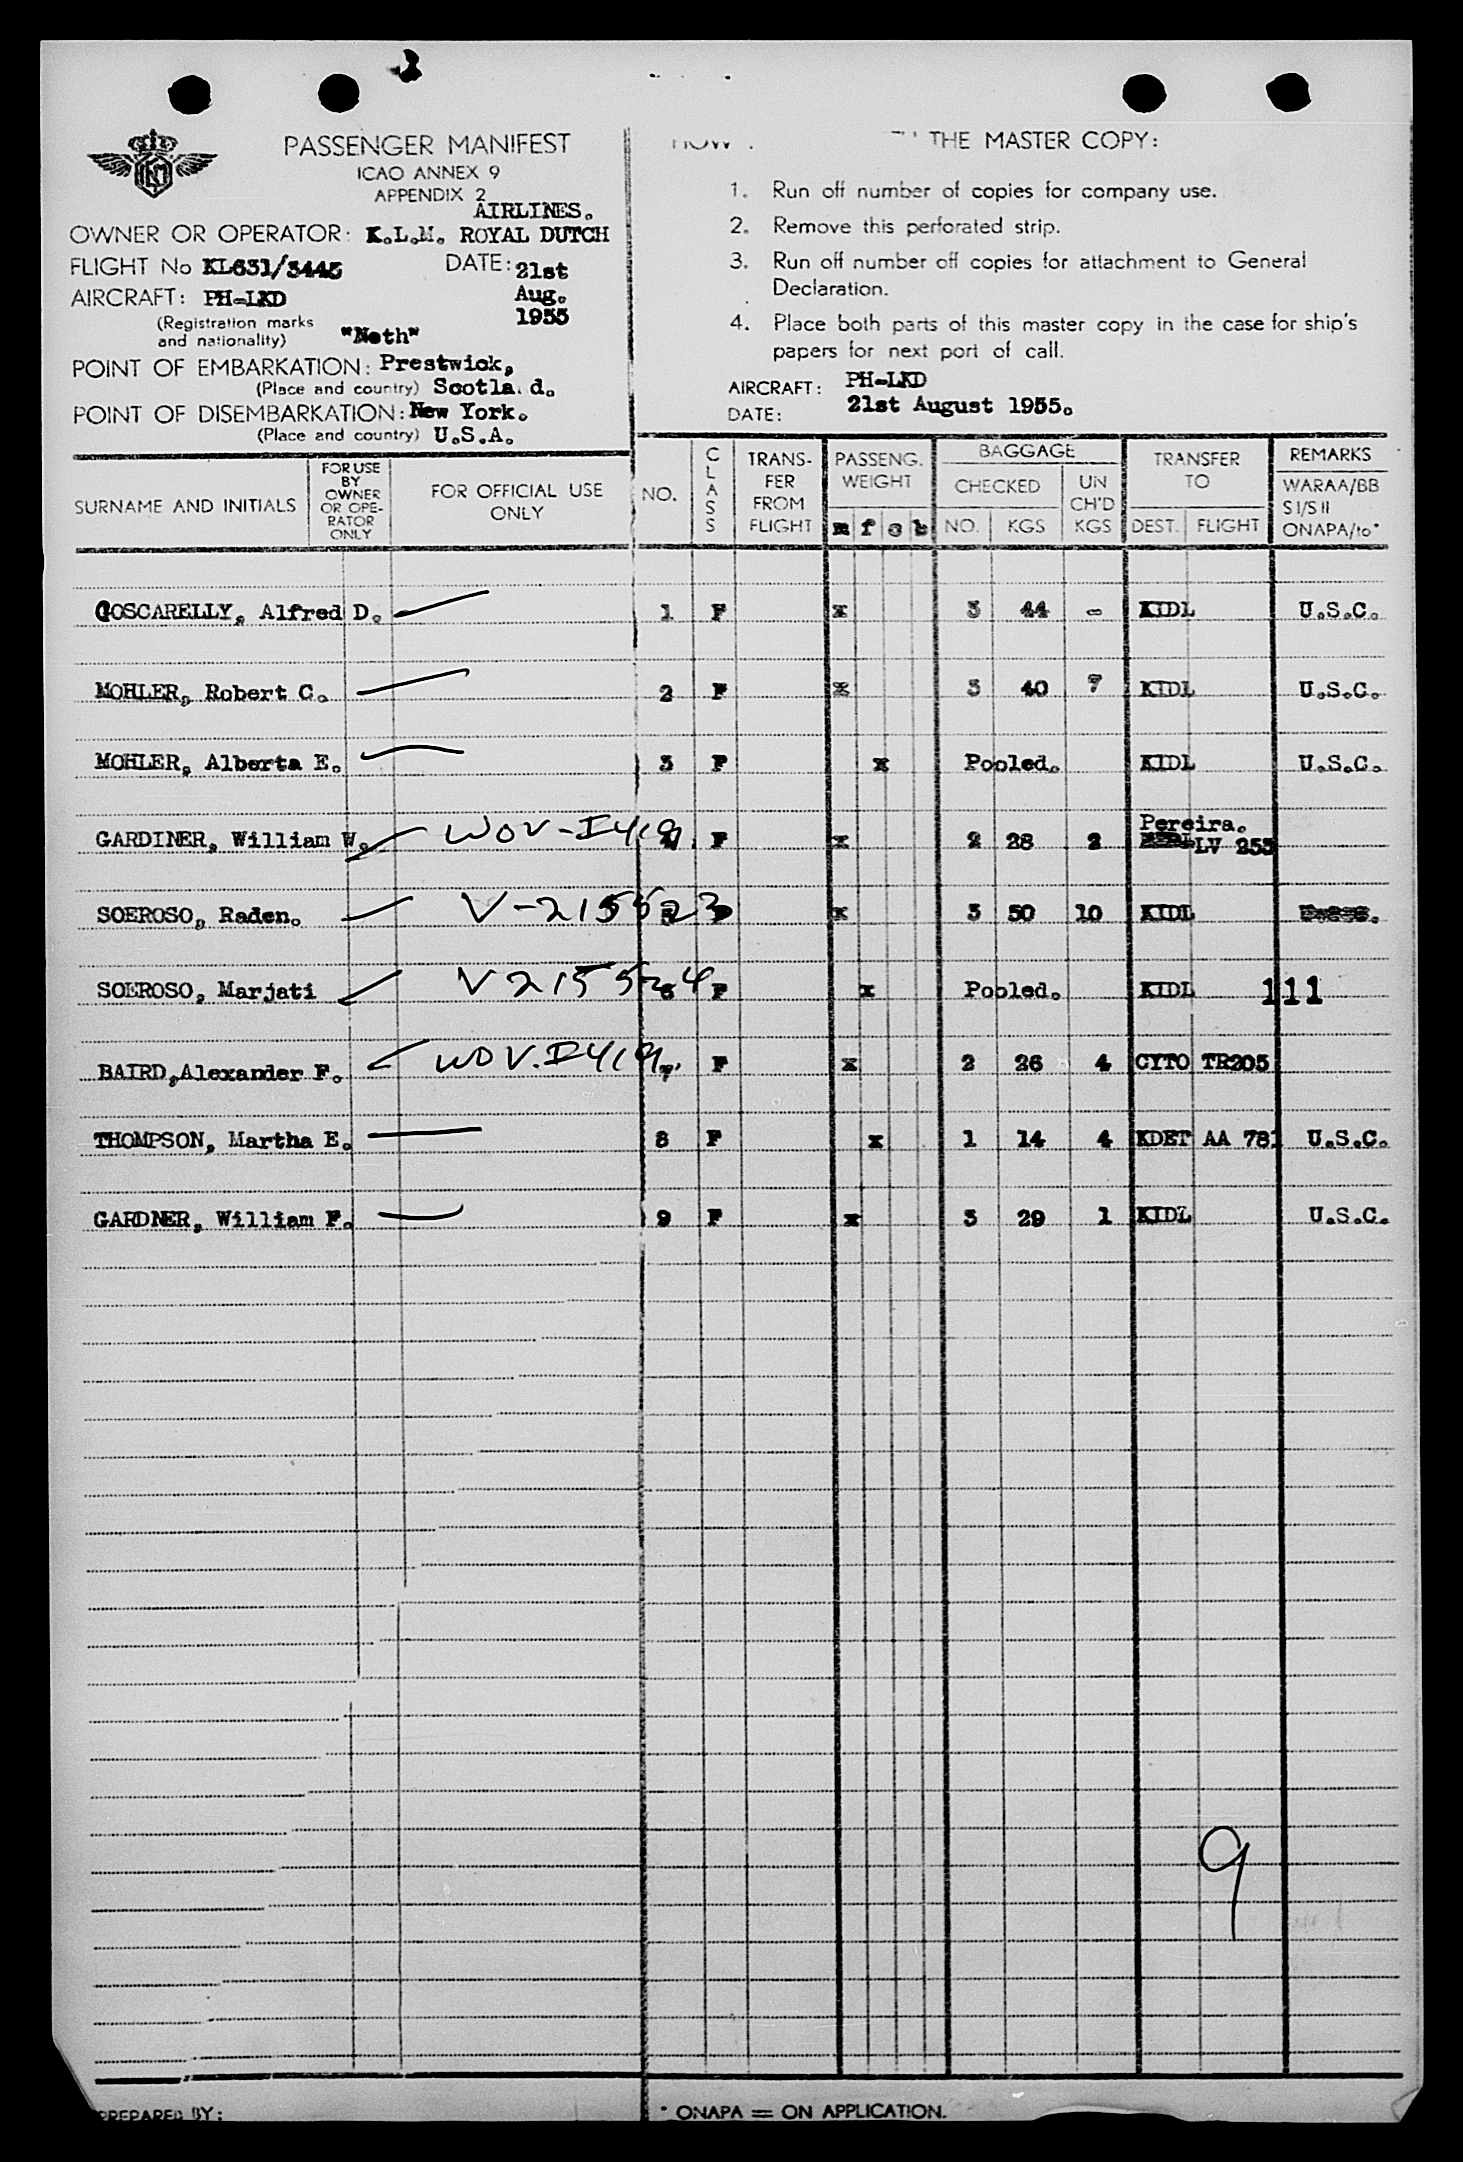 PASSENGER MANIFEST
ICAO ANNEX 9
APPENDIX 2
AIRLINES.
OWNER OR OPERATOR: K.L.M. ROYAL DUTCH
FLIGHT No KL631/3445 DATE: 21st
AIRCRAFT: PH-LKD Aug.
(Registration marks 1955
and nationality) "Neth"
POINT OF EMBARKATION: Prestwick,
(Place and country) Scotla d.
POINT OF DISEMBARKATION: New York.
(Place and country) U.S.A.
THE MASTER COPY:
1. Run off number of copies for company use.
2. Remove this perforated strip.
3. Run off number off copies for attachment to General
Declaration.
4. Place both parts of this master copy in the case for ship's
papers for next port of call.
AIRCRAFT: PH-LKD
DATE: 21st August 1955.
SURNAME AND INITIALS
FOR USE
BY
OWNER
OR OPE-
RATOR
ONLY
FOR OFFICIAL USE
ONLY
NO.
CLASS
TRANS-
FER
FROM
FLIGHT
PASSENG.
WEIGHT
m f c b
BAGGAGE
CHECKED
NO. KGS
UN
CH'D
KGS
TRANSFER
TO
DEST. FLIGHT
REMARKS
WARAA/BB
S I/S II
ONAPA/to*
GOSCARELLY, Alfred D. 1 F x 3 44 - KIDL U.S.C.
MOHLER, Robert C. 2 F x 3 40 7 KIDL U.S.C.
MOHLER, Alberta E. 3 F x Pooled. KIDL U.S.C.
Pereira.
GARDINER, William W. WOV-I419 4 F x 2 28 2 LV 253
SOEROSO, Raden. V-215523 5 F x 3 50 10 KIDL
SOEROSO, Marjati V215524 6 F x Pooled. KIDL 111
BAIRD, Alexander F. WOV.I419 7 F x 2 26 4 CYTO TR205
THOMPSON, Martha E. 8 F x 1 14 4 KDET AA 781 U.S.C.
GARDNER, William F. 9 F x 3 29 1 KIDL U.S.C.
9
PREPARED BY:
* ONAPA = ON APPLICATION.